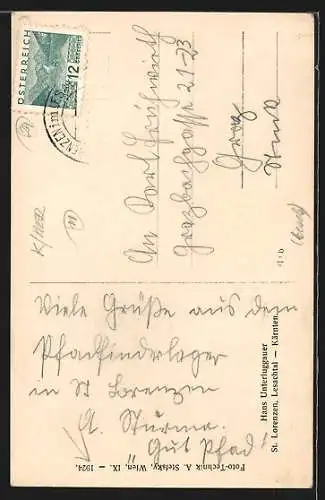 ÖSTERREICH
12
GROSCHEN
ENZEN im
An Karl Frühwirth
Grazbachgasse 21-23
Graz
Viele Grüße aus dem
Pfadfinderlager
in St Lorenzen
A. Sturma
"Gut Pfad"
Hans Unterluggauer
St. Lorenzen, Lesachtal — Kärnten.
Foto-Technik A. Stefsky, Wien, IX. — 1924.